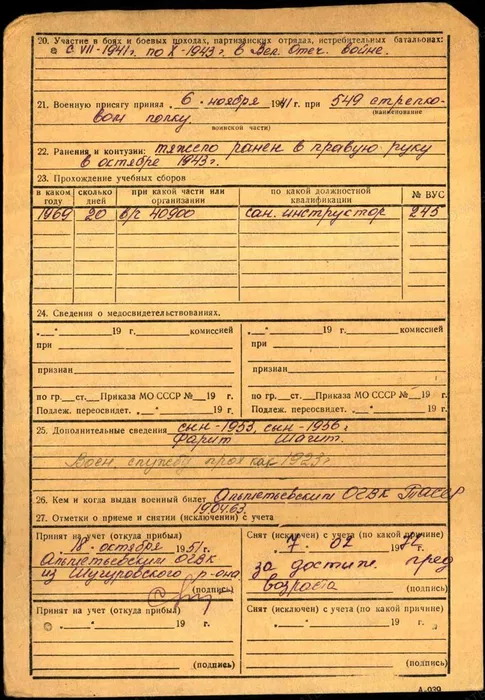 20. Участие в боях и боевых походах, партизанских отрядах, истребительных батальонах:
с VII-1941 г. по X-1943 г. в Вел. Отеч. войне.
21. Военную присягу принял „6" ноября 1941 г. при 549 стрелко-
(наименование
вом полку.
воинской части)
22. Ранения и контузии: тяжело ранен в правую руку
в октябре 1943 г.
23. Прохождение учебных сборов
в каком году сколько дней при какой части или организации по какой должностной квалификации № ВУС
1969 20 в/ч 40900 сан. инструктор 245
24. Сведения о медосвидетельствованиях.
„__"______19 г. комиссией „__"______19 г. комиссией
при при
признан признан
по гр.__ст.__Приказа МО СССР №__19 г. по гр.__ст.__Приказа МО СССР №__19 г.
Подлеж. переосвидет. „__"______19 г. Подлеж. переосвидет. „__"______19 г.
25. Дополнительные сведения сын-1953, сын-1956 г.
Фарит Шагит.
Воен. службу прох как 1923 г
26. Кем и когда выдан военный билет Альметьевским ОГВК ТАССР
19.04.63.
27. Отметки о приеме и снятии (исключении) с учета
Принят на учет (откуда прибыл) Снят (исключен) с учета (по какой причине)
„18" октября 1951 г. „7" 02 1974 г.
Альметьевским ОГВК за достиж. пред
из Шугуровского р-она возраста
(подпись) (подпись)
Принят на учет (откуда прибыл) Снят (исключен) с учета (по какой причине)
„__"______19 г. „__"______19 г.
(подпись) (подпись)
А-939